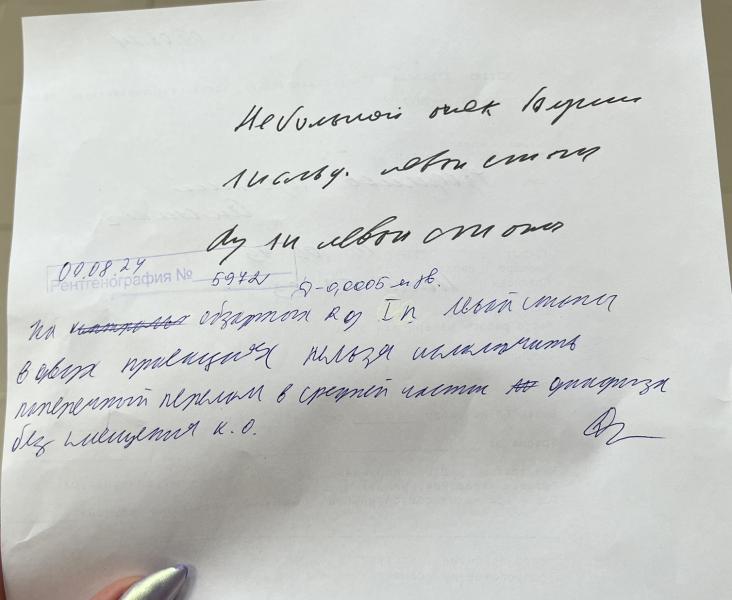 Небольшой отек
1 пальц. левой стопы
1п левой стопы
09.08.24
Рентгенография № 5972 0,0005 мзв.
На обзорных Rg I п. левой стопы
в двух проекциях нельзя исключить
поперечный перелом в средней части диафиза
без смещения к.о.